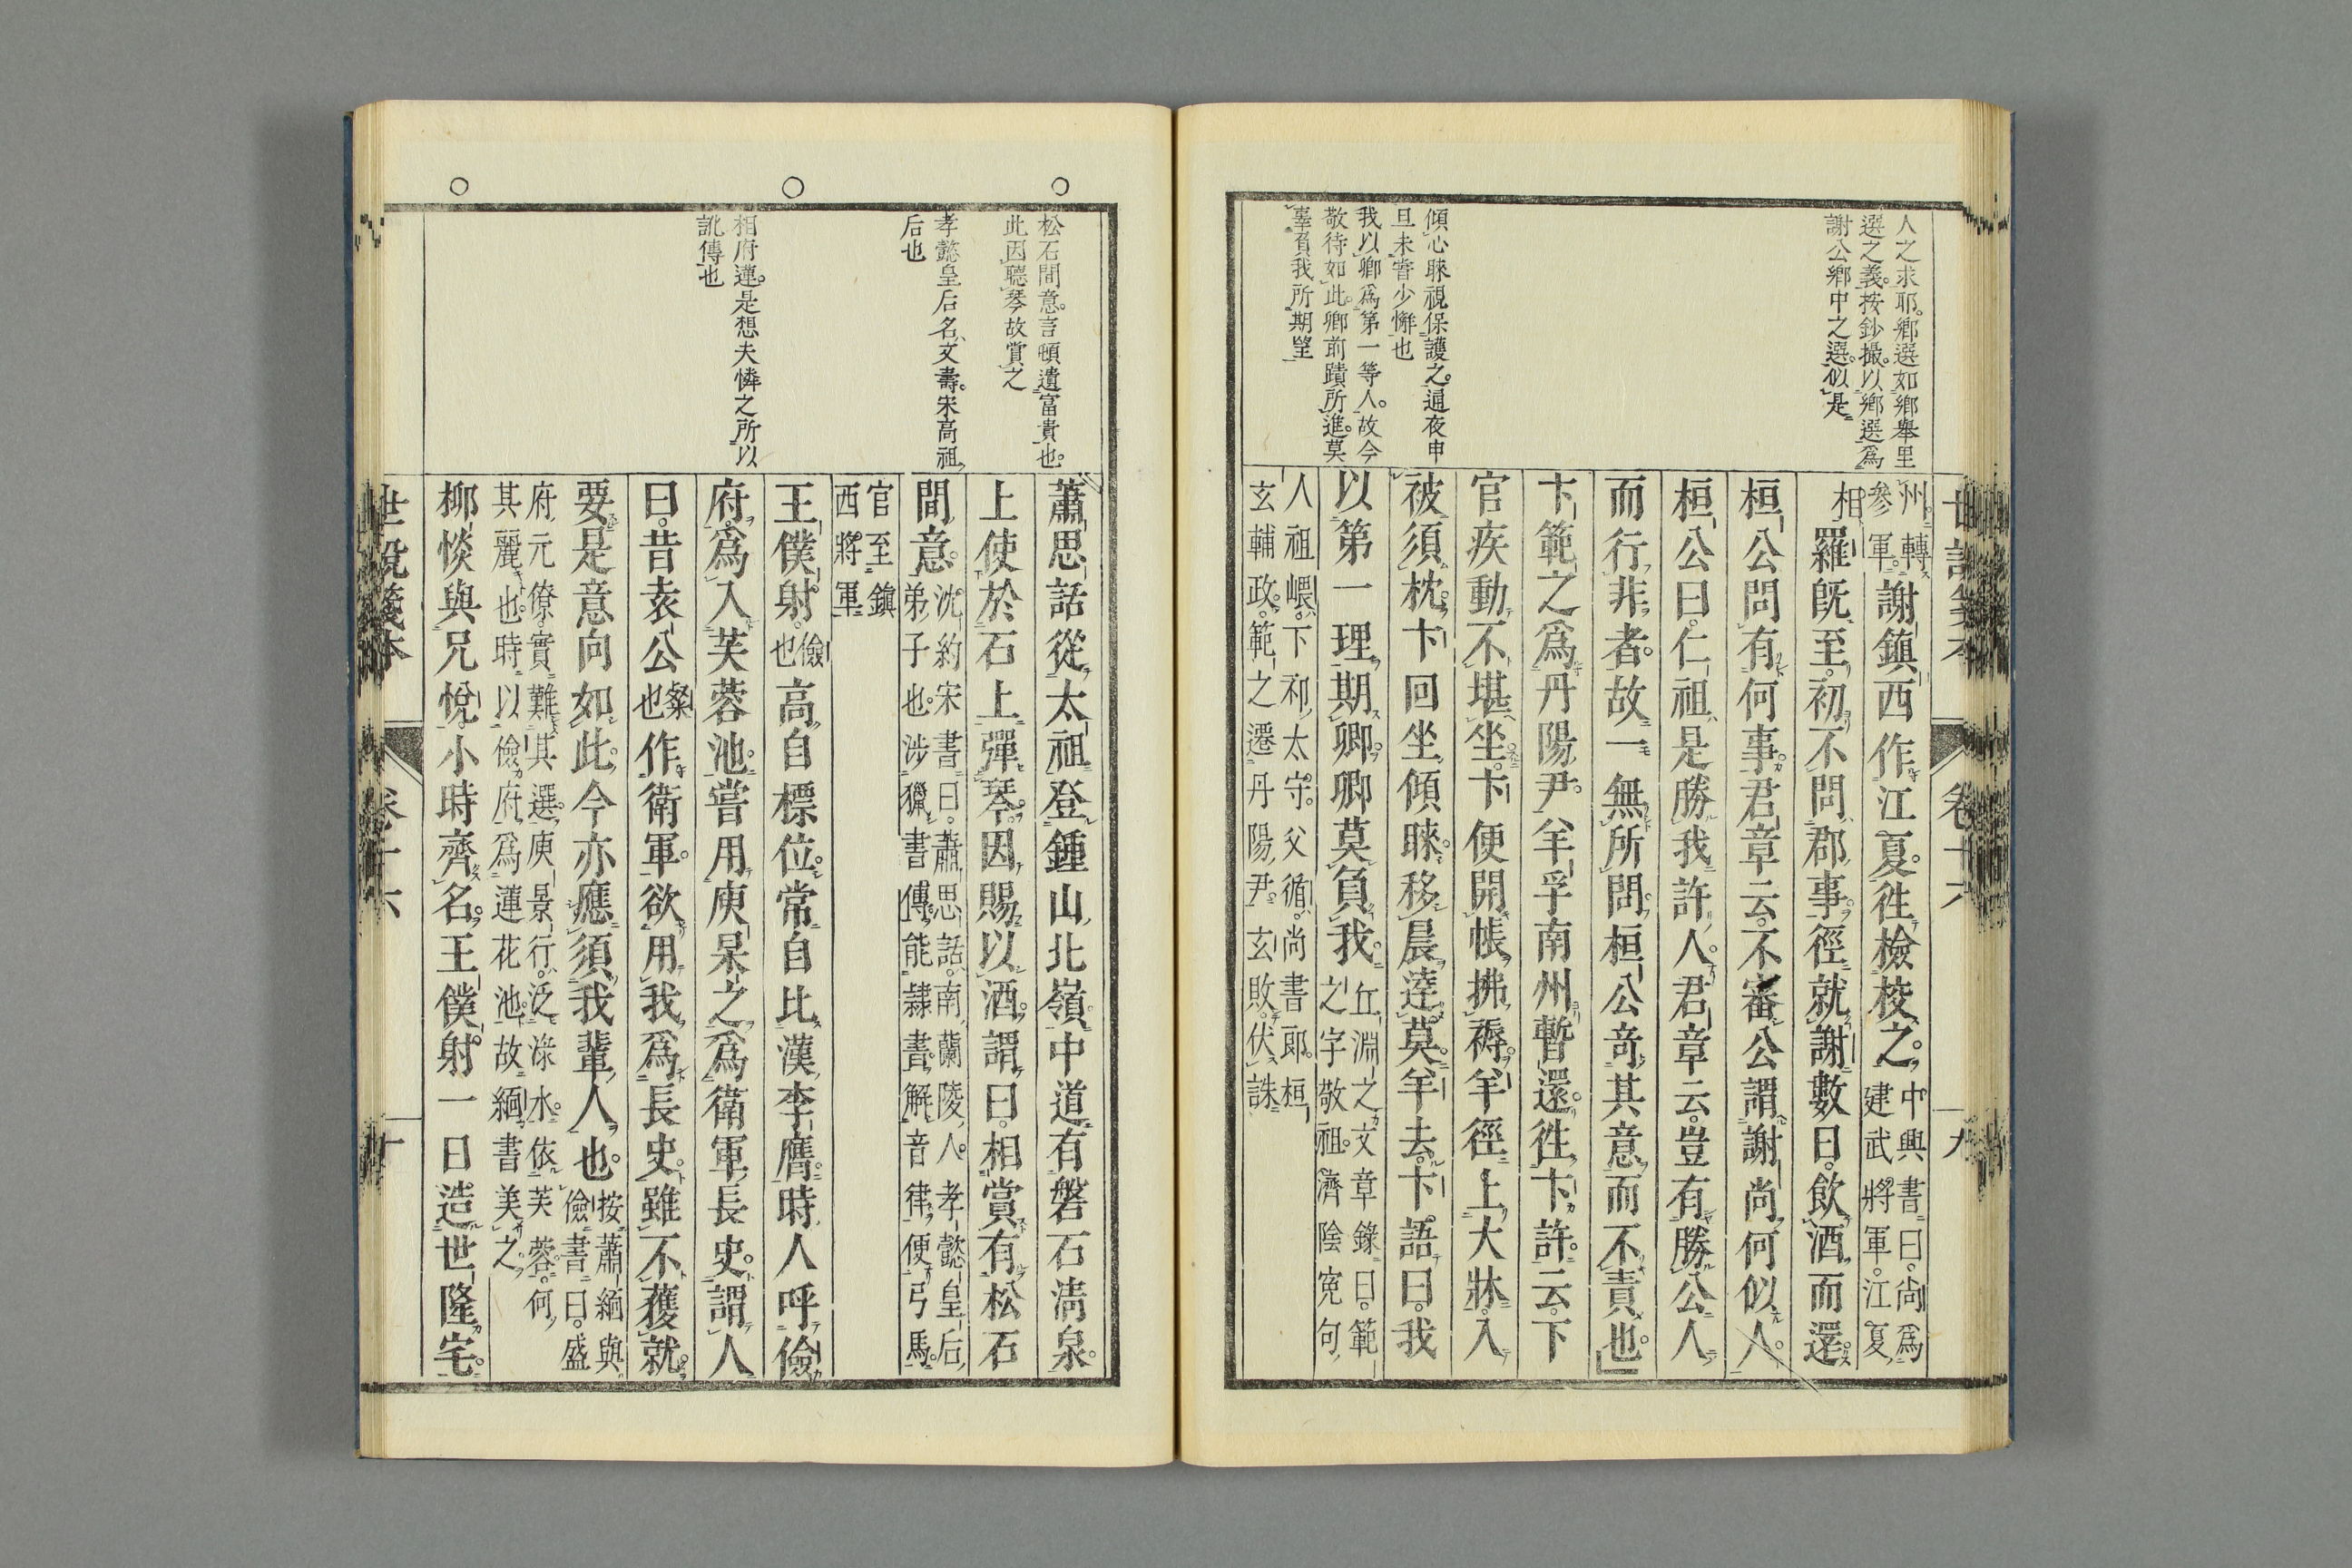 人之求耶。鄉選如鄉舉里
選之義。按鈔撮。以鄉選爲
謝公鄉中之選。似是
傾心睞視保護之。通夜申
旦未甞少懈也
我以卿爲第一等人。故今
敬待如此。卿前蹟所進。莫
辜負我所期望
世說箋本 卷十六 九
州。轉
參軍。謝鎮西作江夏。徃檢校之。中興書曰。尙爲
建武將軍。江夏
相羅旣至。初不問郡事。徑就謝數日。飮酒而還。
桓公問有何事。君章云。不審公謂謝尙何似人。
桓公曰。仁祖是勝我許人。君章云。豈有勝公人
而行非者。故一無所問。桓公奇其意而不責也。
卞範之爲丹陽尹。羊孚南州暫還。徃卞許。云。下
官疾動不堪坐。卞便開帳拂褥。羊徑上大牀。入
被須枕。卞回坐傾睞。移晨達莫。羊去。卞語曰。我
以第一理期卿。卿莫負我。丘淵之文章錄曰。範
之字敬祖。濟陰寃句
人祖嶾。下邳太守。父循。尚書郎。桓
玄輔政。範之遷丹陽尹。玄敗。伏誅
松石間意。言頓遺富貴也。
此因聽琴故賞之
孝懿皇后名。文壽。宋高祖
后也
相府蓮。是想夫憐之所以
訛傳也
蕭思話從太祖登鍾山北嶺。中道有磐石淸泉。
上使於石上彈琴。因賜以酒。謂曰。相賞有松石
間意。沈約宋書曰。蕭思話。南蘭陵人。孝懿皇后
弟子也。涉獵書傳。能隷書。解音律。便弓馬。
官至鎮
西將軍
王僕射。儉也高自標位。常自比漢李膺。時人呼儉
府爲入芙蓉池。甞用庾杲之爲衛軍長史。謂人
曰。昔袁公粲也作衛軍。欲用我爲長史。雖不獲就。
要是意向如此。今亦應須我輩人也。按蕭緬與
儉書曰。盛
府元僚。實難其選。庾景行。泛淥水。依芙蓉。何
其麗也。時以儉府爲蓮花池。故緬書美之
柳惔與兄悅小時齊名。王僕射一日造世隆宅。
世說箋本 卷十六 十